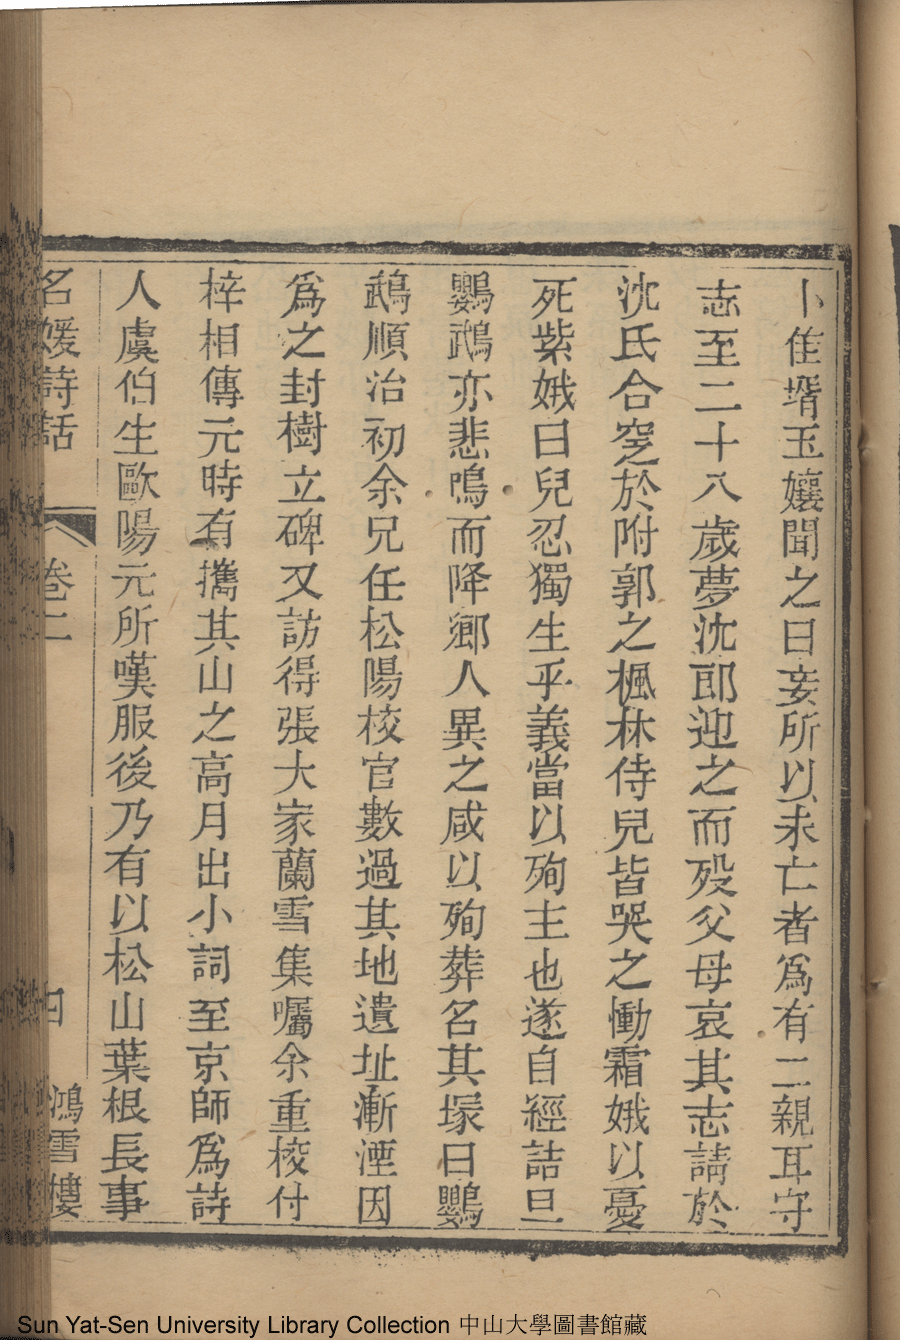 卜隹壻玉孃聞之曰妾所以未亡者爲有二親耳守
志至二十八歲夢沈郎迎之而殁父母哀其志請於
沈氏合窆於附郭之楓林侍兒皆哭之慟霜娥以憂
死紫娥曰兒忍獨生乎義當以殉主也遂自經詰旦
鸚鵡亦悲鳴而降鄉人異之咸以殉葬名其塚曰鸚
鵡順治初余兄任松陽校官數過其地遺址漸湮因
爲之封樹立碑又訪得張大家蘭雪集囑余重校付
梓相傳元時有攜其山之高月出小詞至京師爲詩
人虞伯生歐陽元所嘆服後乃有以松山葉根長事
名媛詩話 卷二 四 鴻雪樓
Sun Yat-Sen University Library Collection 中山大學圖書館藏